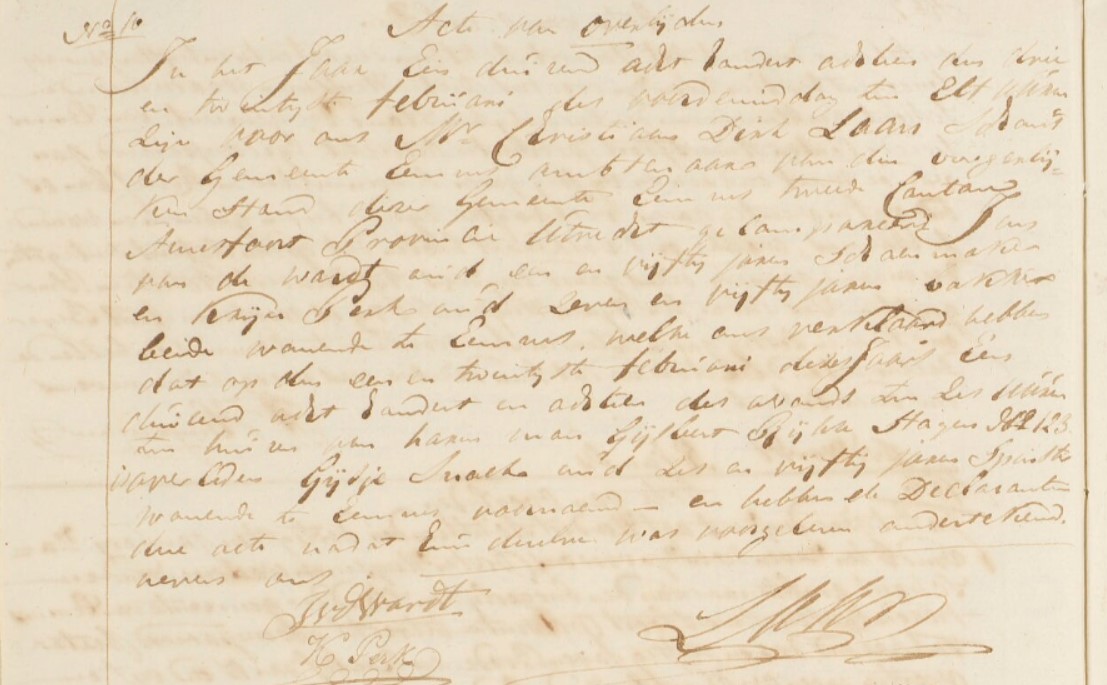 No 10 Acte van overlijden
In het Jaar Een duizend acht hondert achtien den drie
en twintigste februari des voordemiddag ten Elf uuren
Zijn voor ons Mr Christiaan Dirk Laan Schout
der Gemeente Eemnes ambtenaar van den burgerlij-
ken Stand dezer Gemeente Eemnes tweede Canton
Amersfoort Provincie Utrecht gecompareerd Jan
van de wardt oud een en vijftig jaren Schoenmaker
en Krijn Perk oud Zeven en vijftig jaren
beide wonende te Eemnes, welke ons verklaard hebben
dat op den een en twintigste februari dezes Jaars Een
duizend acht hondert en achtien des avonds ten Zes uuren
ten huize van haren man Gijsbert Hagen No 123
is overleden Gijsje oud Zes en vijftig jaren
wonende te Eemnes voornoemd — en hebben de Declaranten
deze acte nadat hun dezelve was voorgelezen ondertekend
nevens ons
JvdWardt
K Perk
Laan